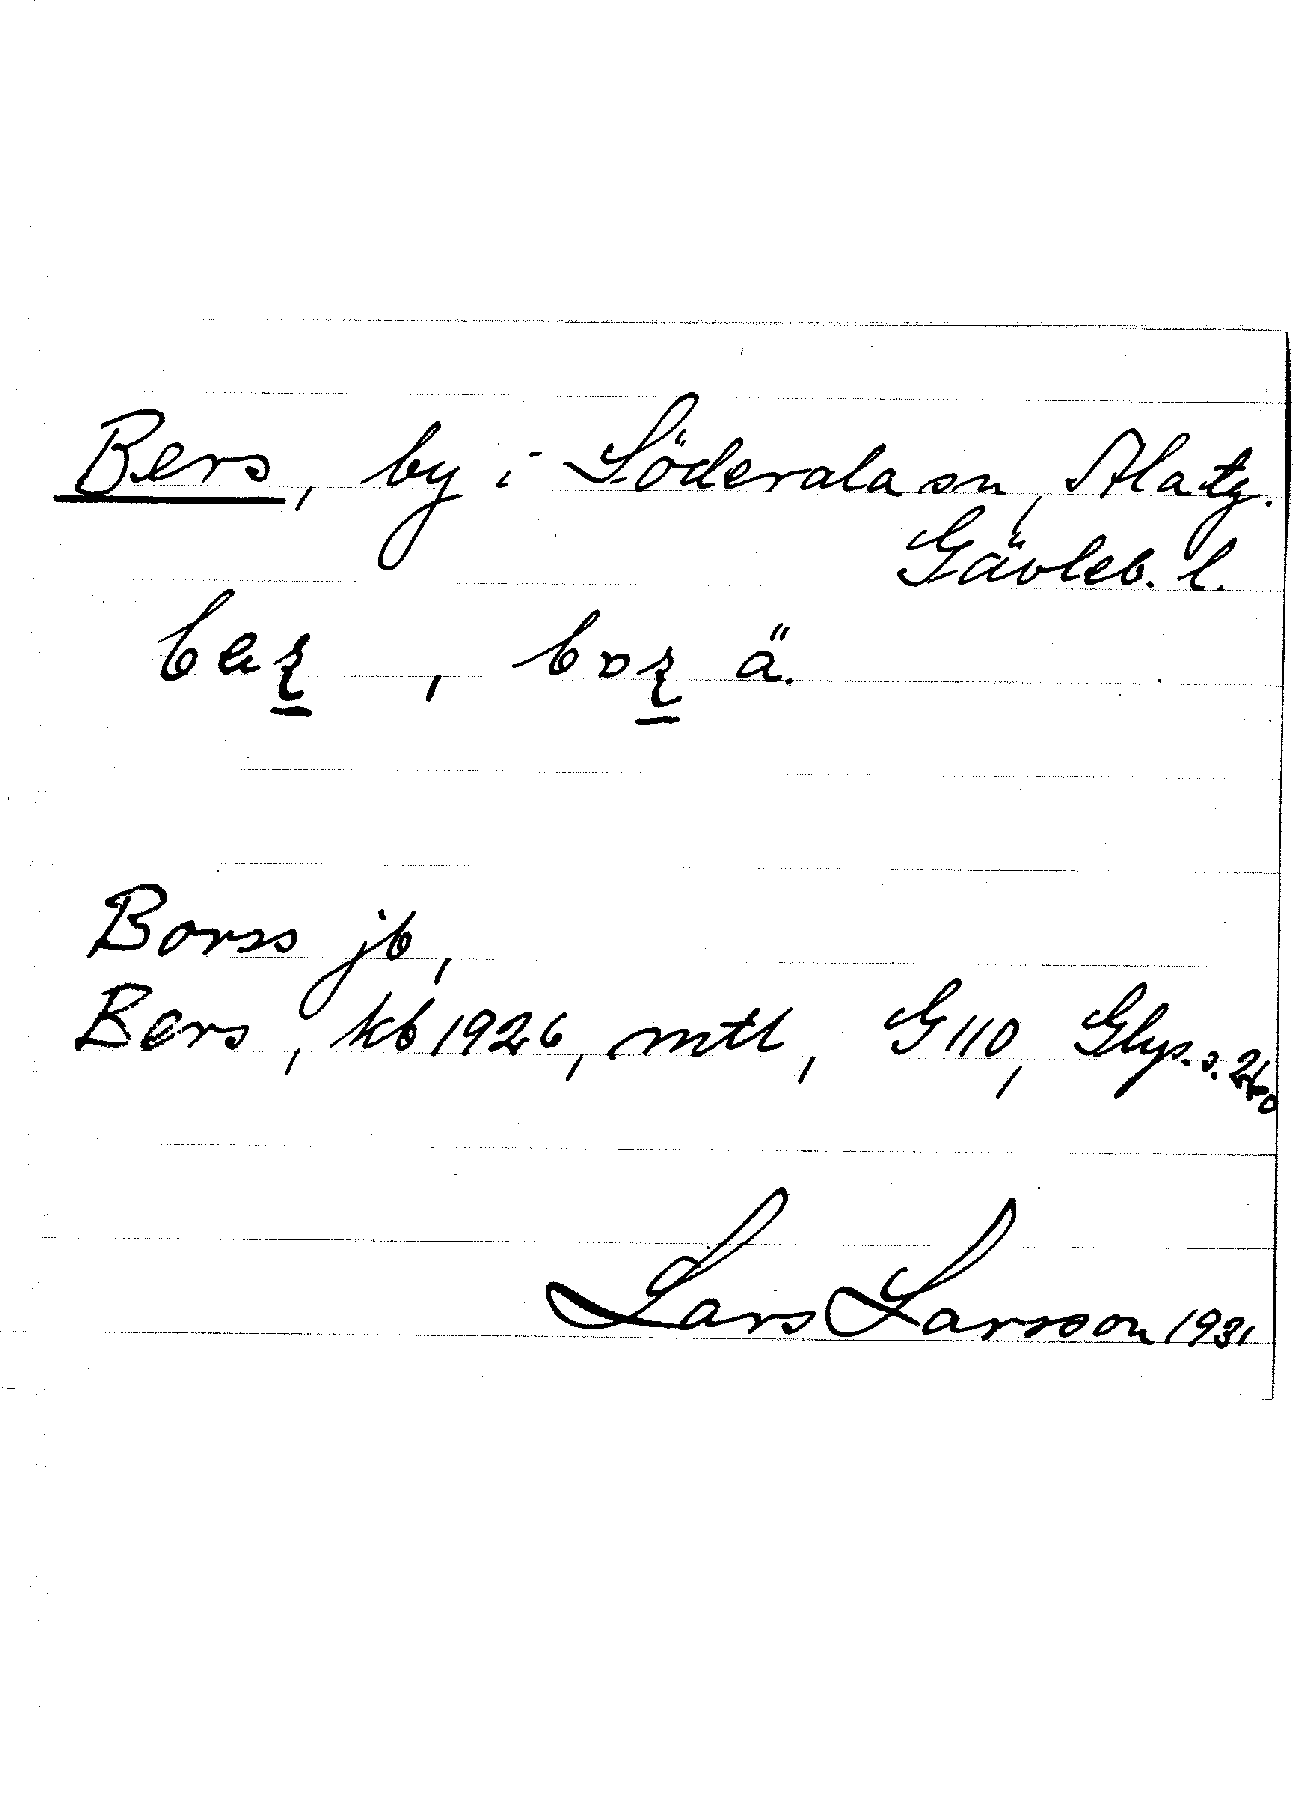 Bers, by i Söderala sn, Alatg.
Gävleb. l.
ä.
Borss jb,
Bers, kb 1926, mtl, G110, Glys. s. 260
Lars Larsson 1931